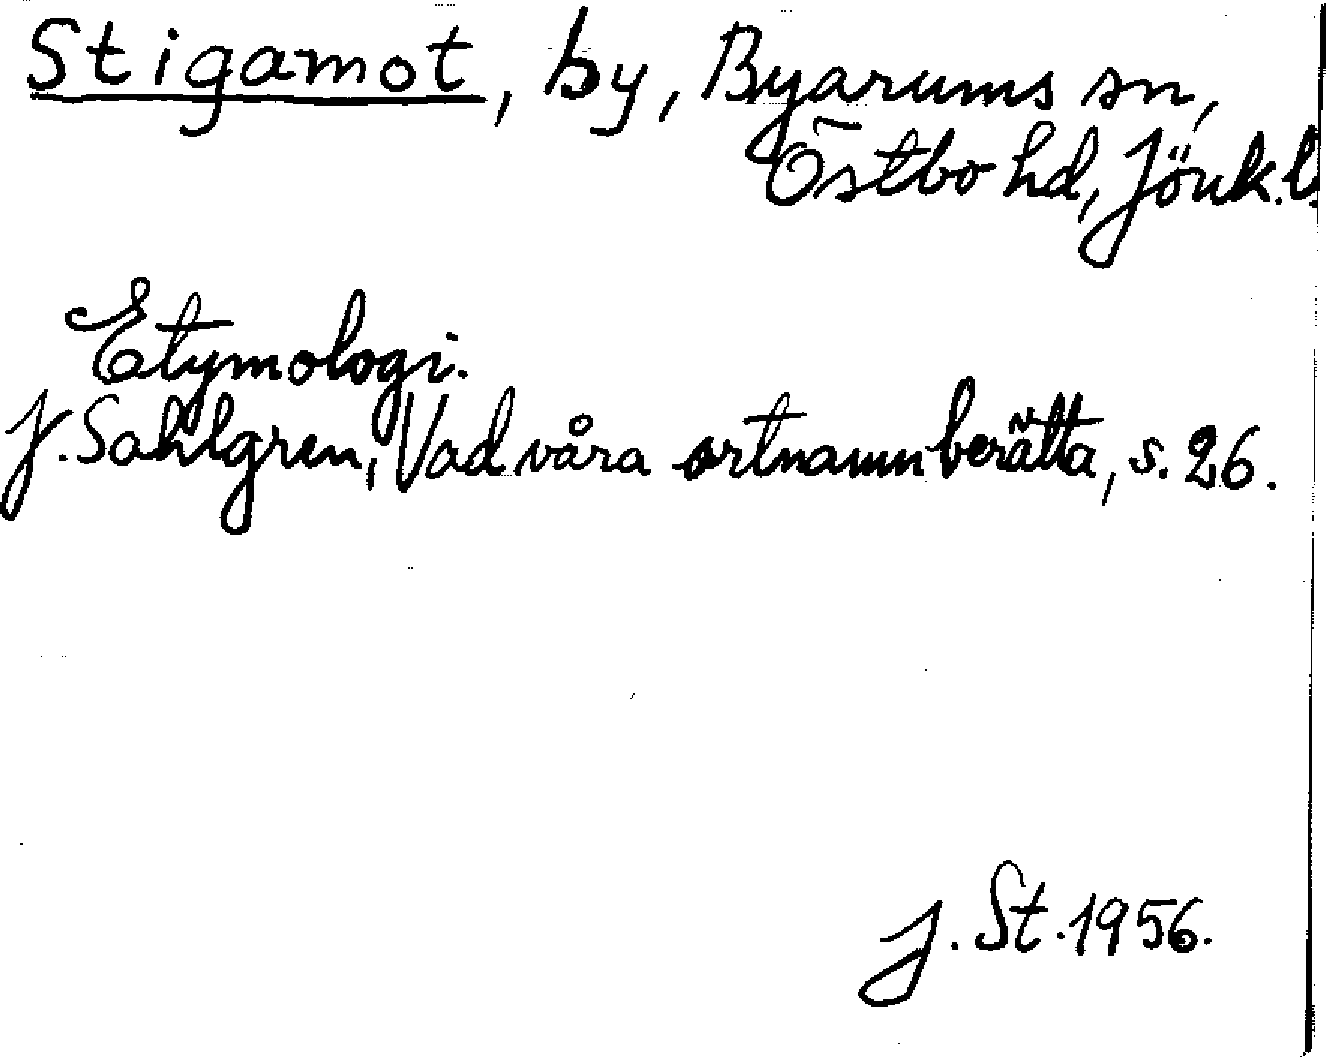 Stigamot, by, Byarums sn,
Östbo hd, Jönk.l.
Etymologi.
J. Sahlgren, Vad våra ortnamn berätta, s. 26.
J. St. 1956.